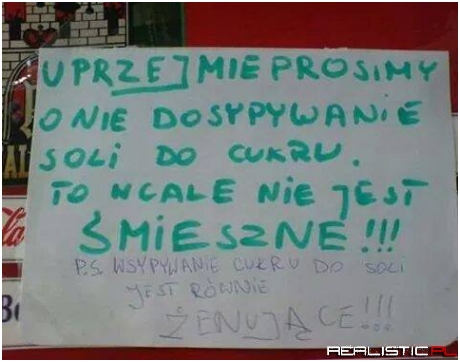 UPRZEJMIE PROSIMY
O NIE DOSYPYWANIE
SOLI DO CUKRU.
TO WCALE NIE JEST
ŚMIESZNE!!!
P.S. WSYPYWANIE CUKRU DO SOLI
JEST RÓWNIE
ŻENUJĄCE!!!
REALISTIC.PL